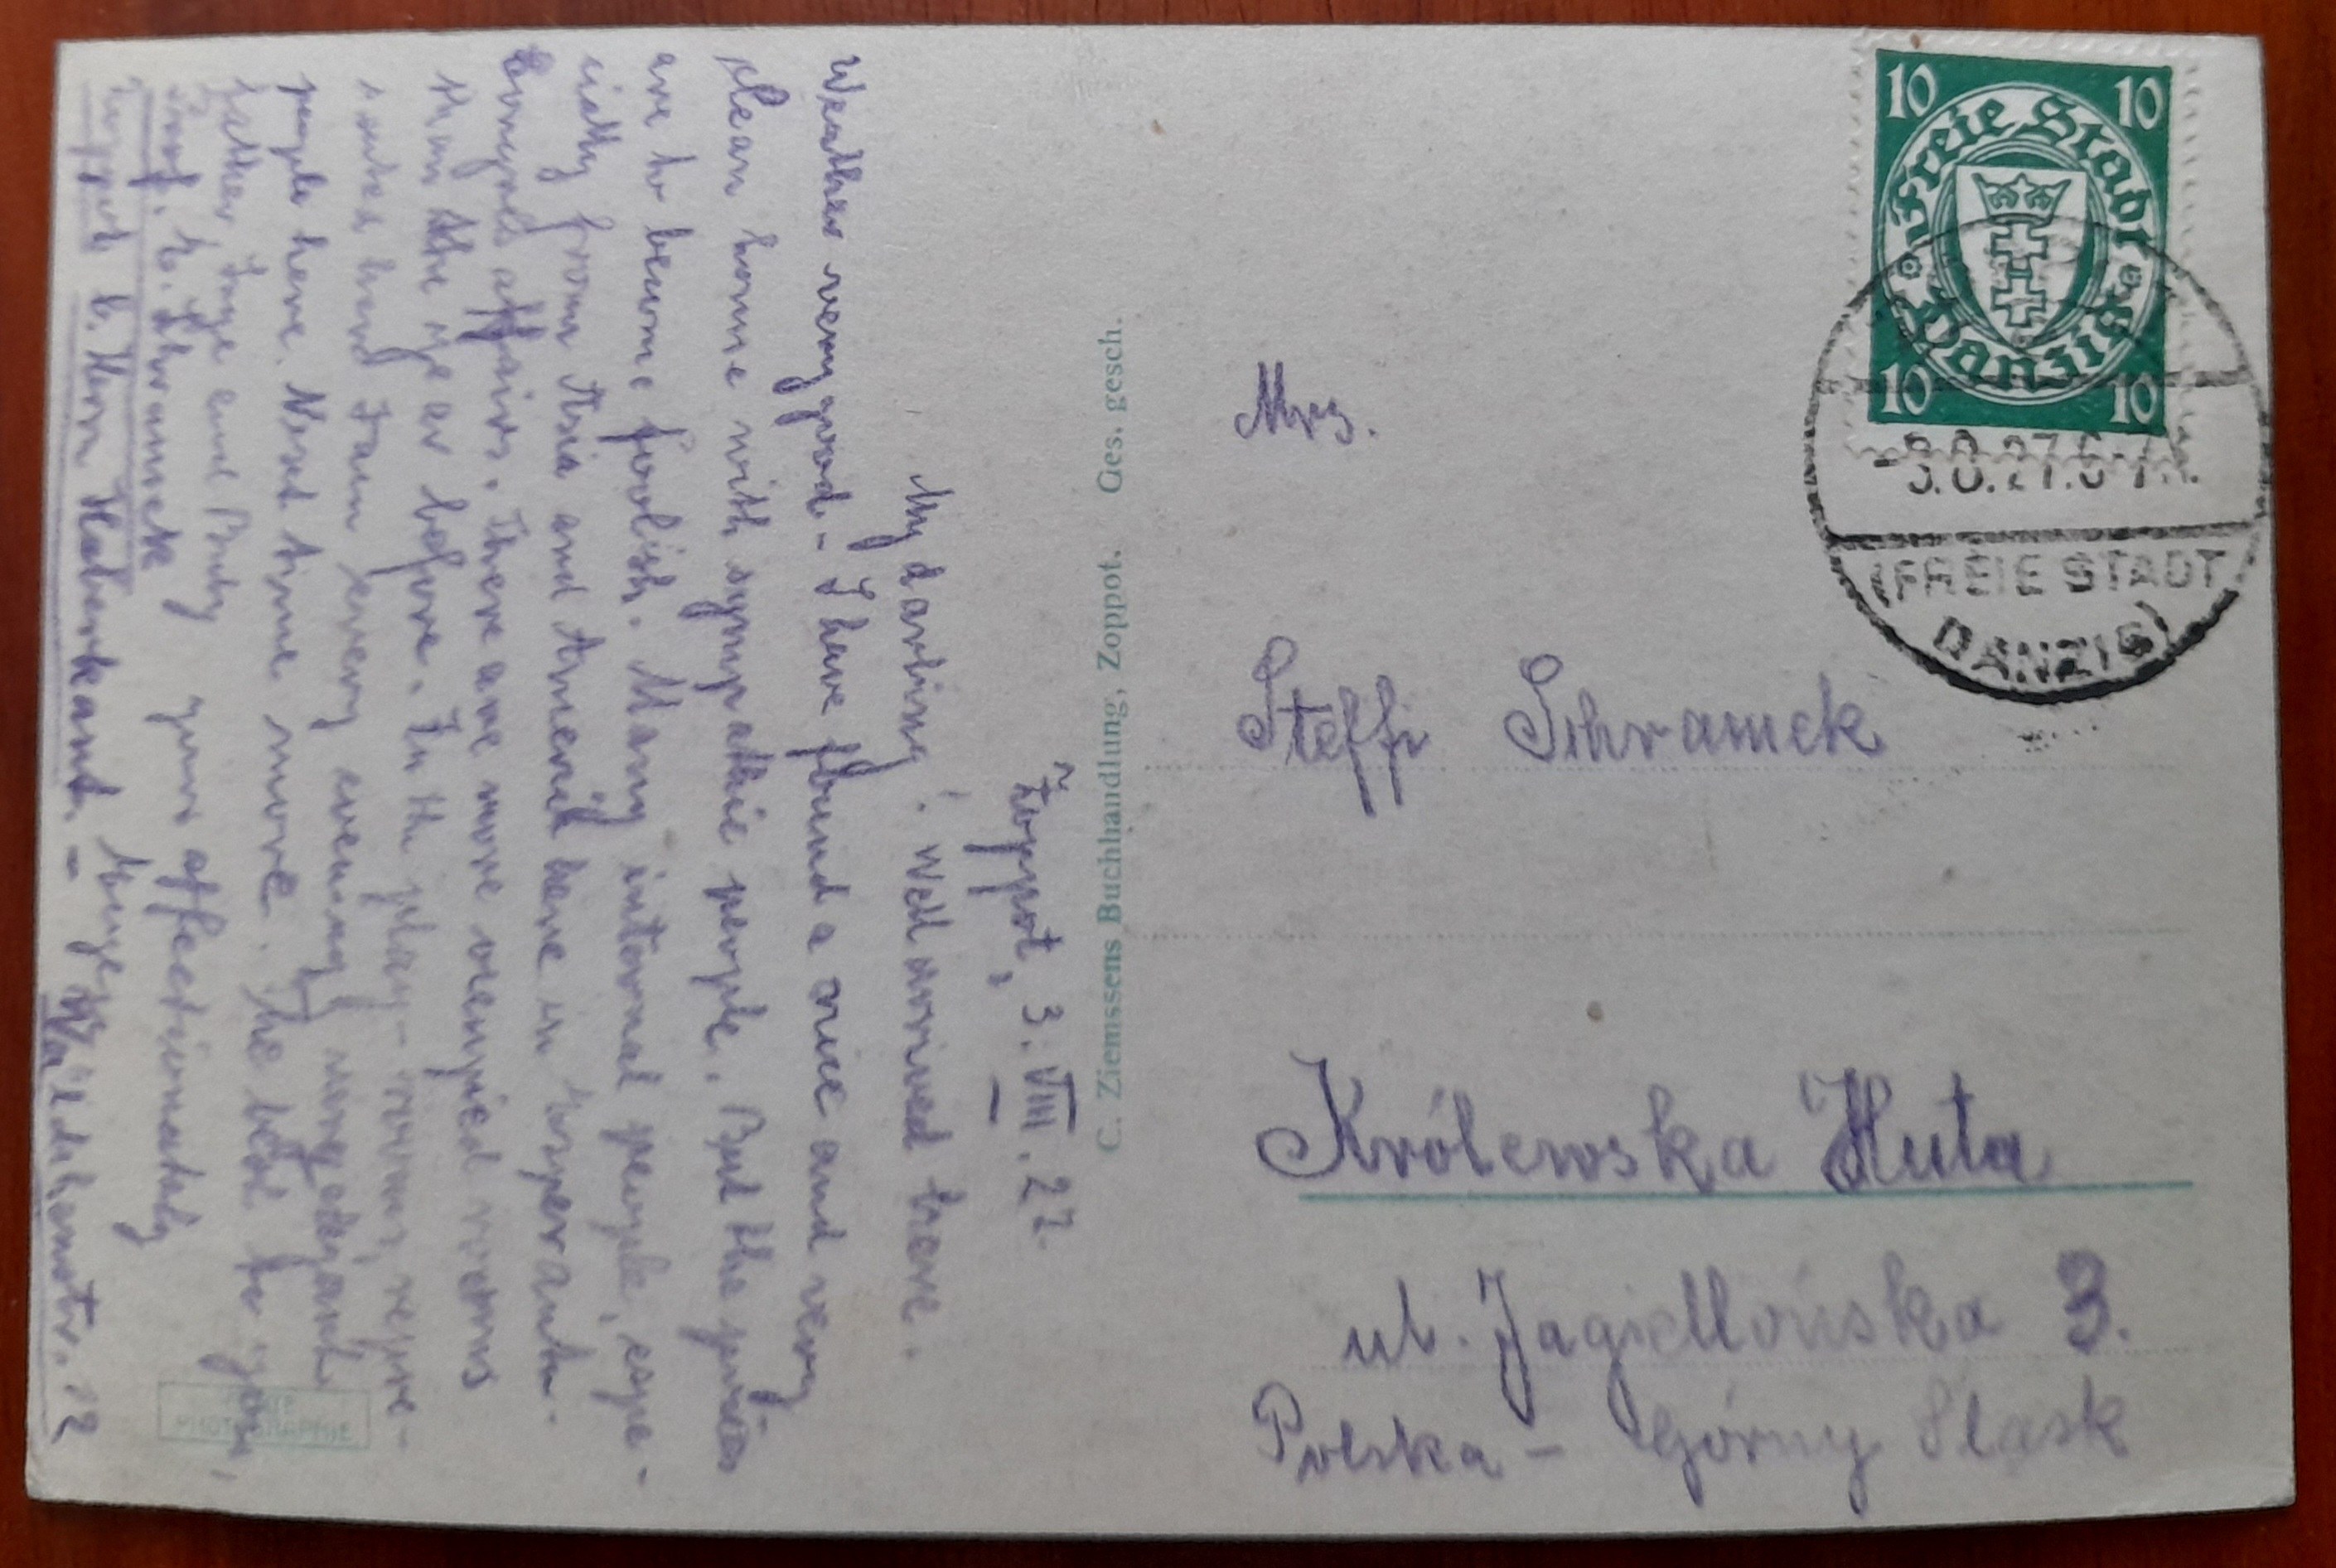 Zoppot, 3. VIII. 27
My darling! Well arrived here.
Weather very good – I have found a nice and very
clean home with sympathic people. But the prices
are to become foolish. Many internat people, espe-
cially from Asia and America here in Esperanto-
Congress affairs. There are more occupied rooms
than the year before. In the play-rooms repre-
sented and I am every evening very elegant
people here. Next time more. The best to you,
father, and
Prof. E. Schramek your affectionately
Zoppot b. Herrn Haberkant. –
Wäldchenstr. 12
C. Ziemssens Buchhandlung, Zoppot. Ges. gesch.
PHOTOGRAPHIE
10 10
Freie Stadt
Danzig
10 10
(FREIE STADT
DANZIG)
Mrs.
Steffi Schramek
Królewska Huta
ul. Jagiellońska 3.
Polska – Górny Śląsk